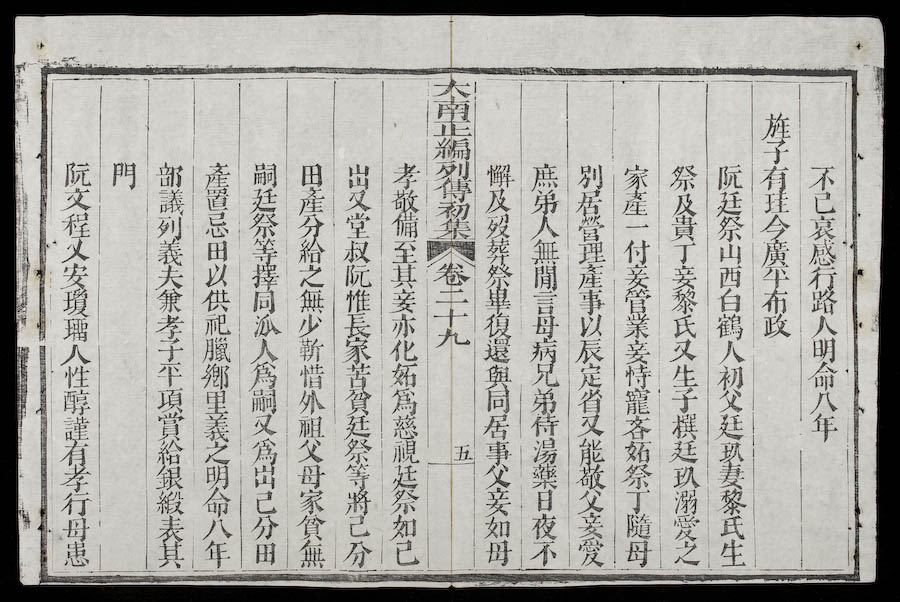 不已哀感行路人明命八年
旌子有珪今廣平布政
阮廷祭山西白鶴人初父廷玖妻黎氏生
祭及貴丁妾黎氏又生子撰廷玖溺愛之
家產一付妾管業妾恃寵吝妬祭丁隨母
別居營理產事以辰定省又能敬父妾愛
庶弟人無閒言母病兄弟侍湯藥日夜不
大南正編列傳初集 卷二十九 五
懈及歿葬祭畢復還與同居事父妾如母
孝敬備至其妾亦化妬爲慈視廷祭如己
出又堂叔阮惟長家苦貧廷祭等將己分
田產分給之無少靳惜外祖父母家貧無
嗣廷祭等擇同派人爲嗣又爲出己分田
產置忌田以供祀臘鄉里義之明命八年
部議列義夫兼孝子平項賞給銀緞表其
門
阮文程乂安瓊瑠人性醇謹有孝行母患